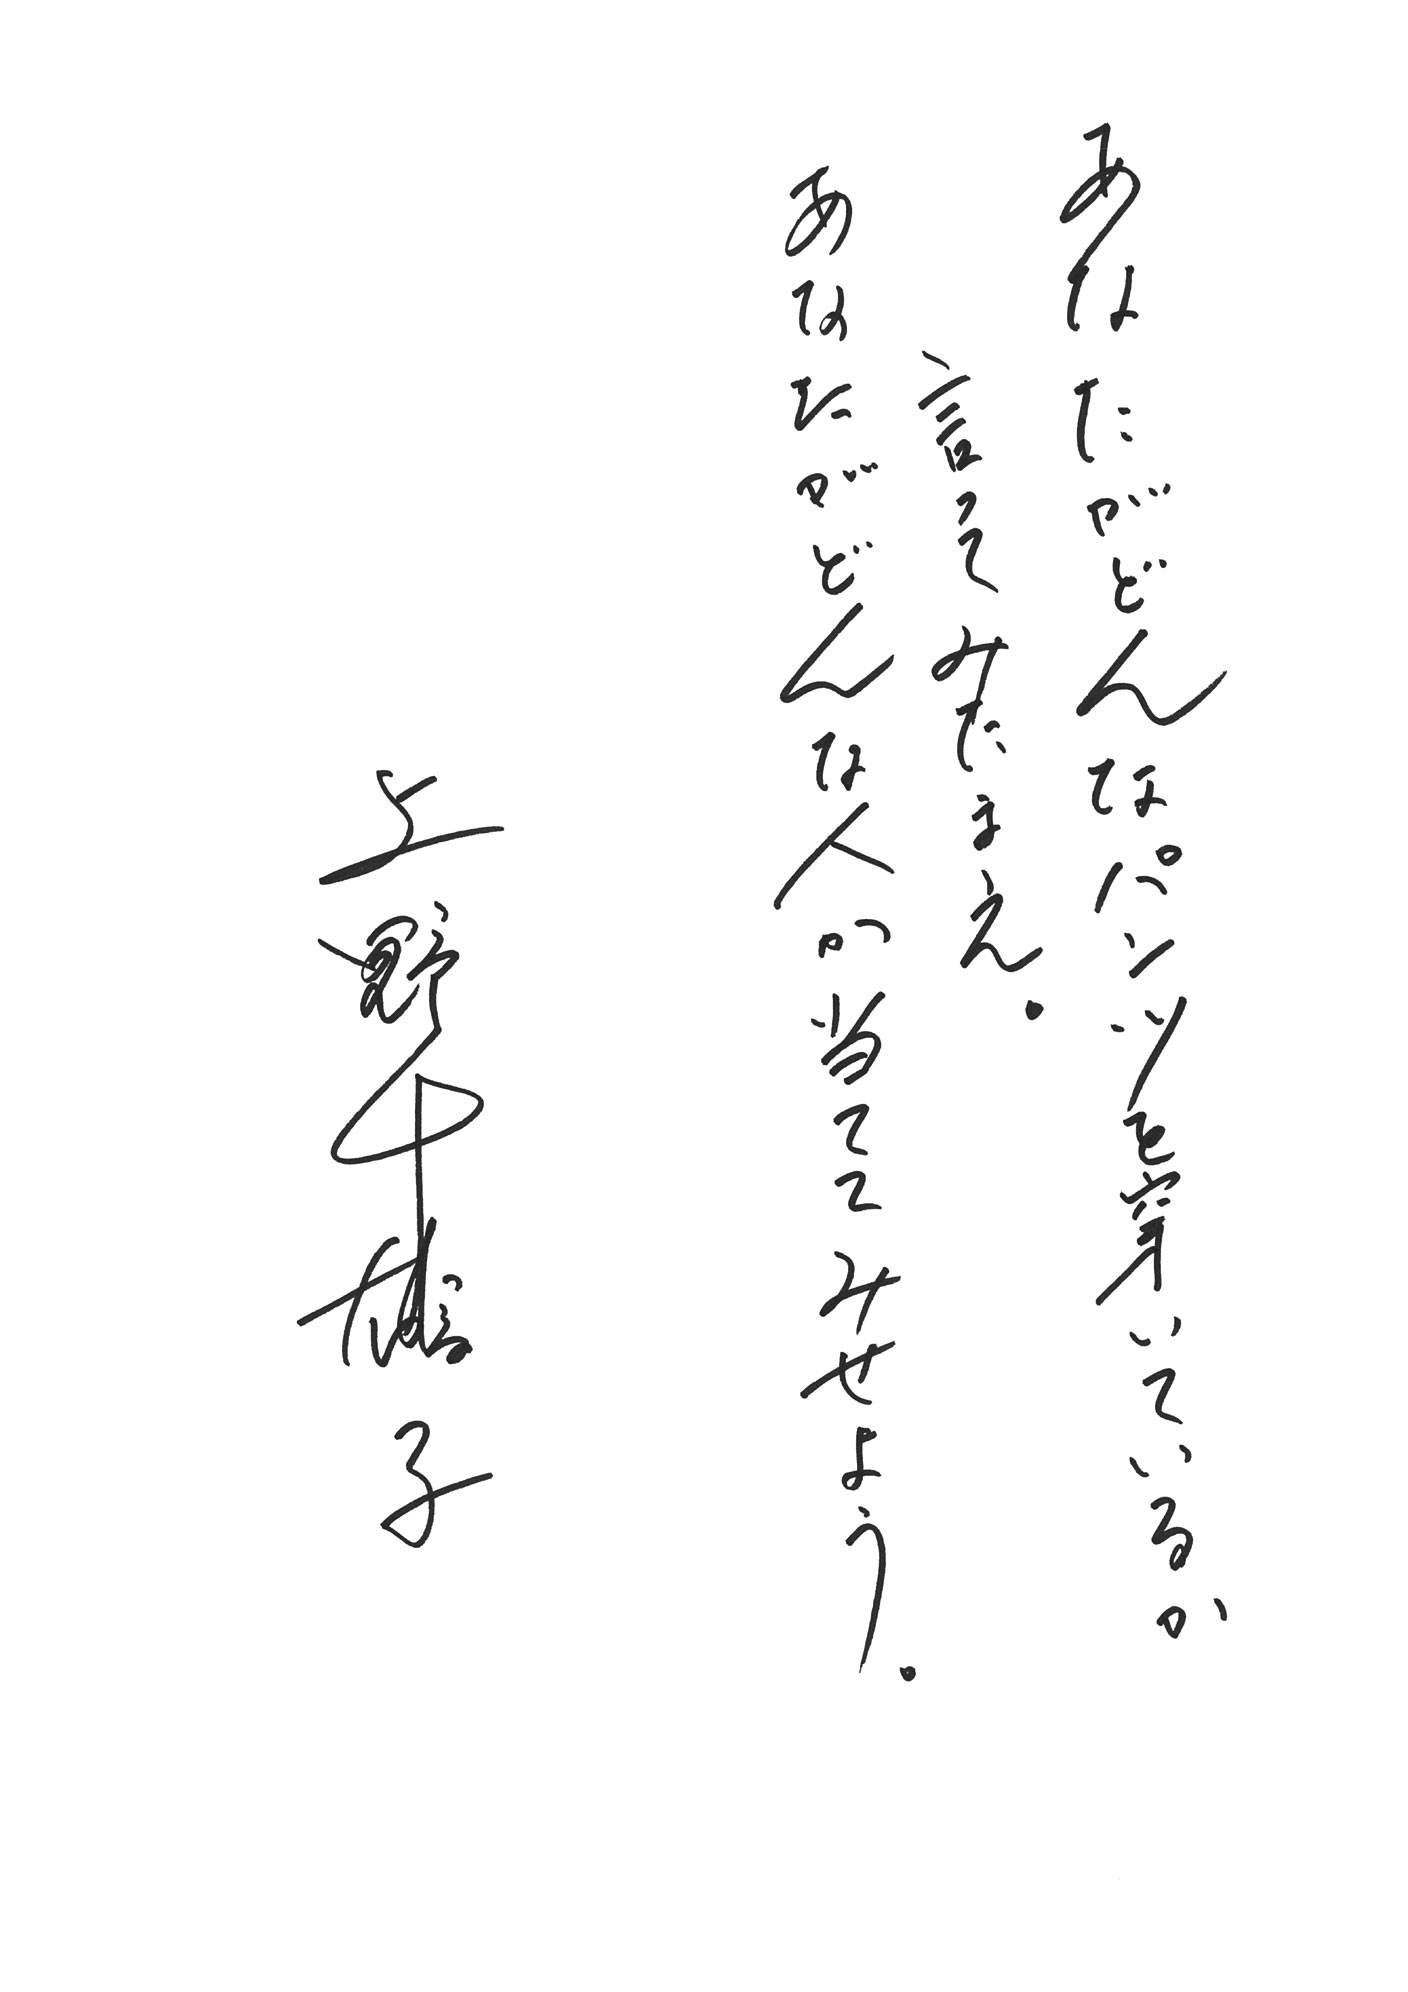 あなたがどんなパンツを穿いているか
言ってみたまえ。
あなたがどんな人か当ててみせよう。
上野千鶴子